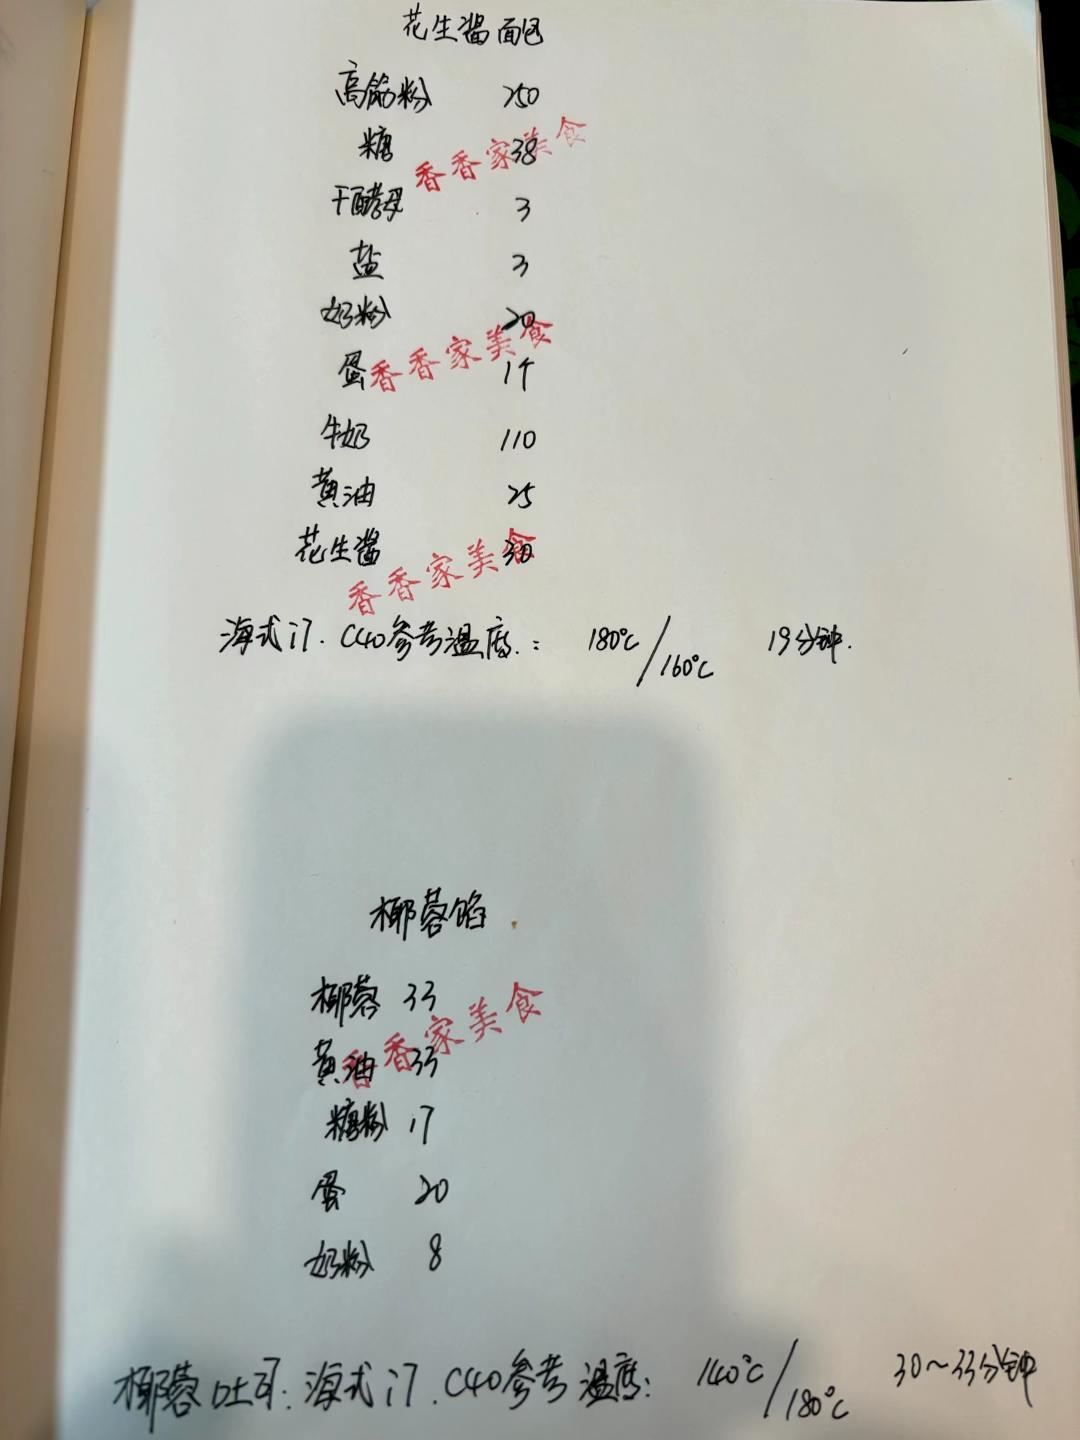 花生酱面包
高筋粉 250
糖 38
香香家美食
干酵母 3
盐 3
奶粉 20
香香家美食
蛋 1个
牛奶 110
黄油 25
花生酱 30
香香家美食
海式i7.C40参考温度.: 180℃/160℃ 19分钟.
椰蓉馅
椰蓉 33
香香家美食
黄油 33
糖粉 17
蛋 20
奶粉 8
椰蓉吐司:海式i7.C40参考温度: 140℃/180℃ 30~33分钟